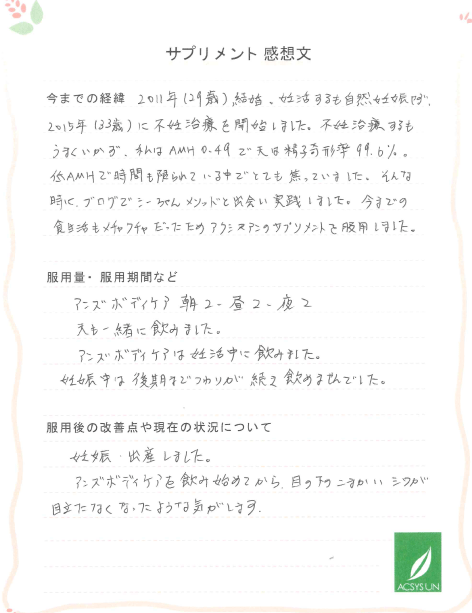 サプリメント 感想文
今までの経緯 2011年(29歳)結婚、妊活するも自然妊娠せず、
2015年(33歳)に不妊治療を開始しました。不妊治療するも
うまくいかず、私はAMH 0.49で夫は精子奇形率99.6%。
低AMHで時間も限られている中でとても焦っていました。そんな
時に、ブログでシーちゃんメソッドと出会い実践しました。今までの
食生活もメチャクチャだったためアクシスアンのサプリメントを服用しました。
服用量・服用期間など
アンズボディケア 朝2-昼2-夜2
夫も一緒に飲みました。
アンズボディケアは妊活中に飲みました。
妊娠中は後期までつわりが続き飲めませんでした。
服用後の改善点や現在の状況について
妊娠・出産しました。
アンズボディケアを飲み始めてから、目の下のこまかいシワが
目立たなくなったような気がします。
ACSYSUN